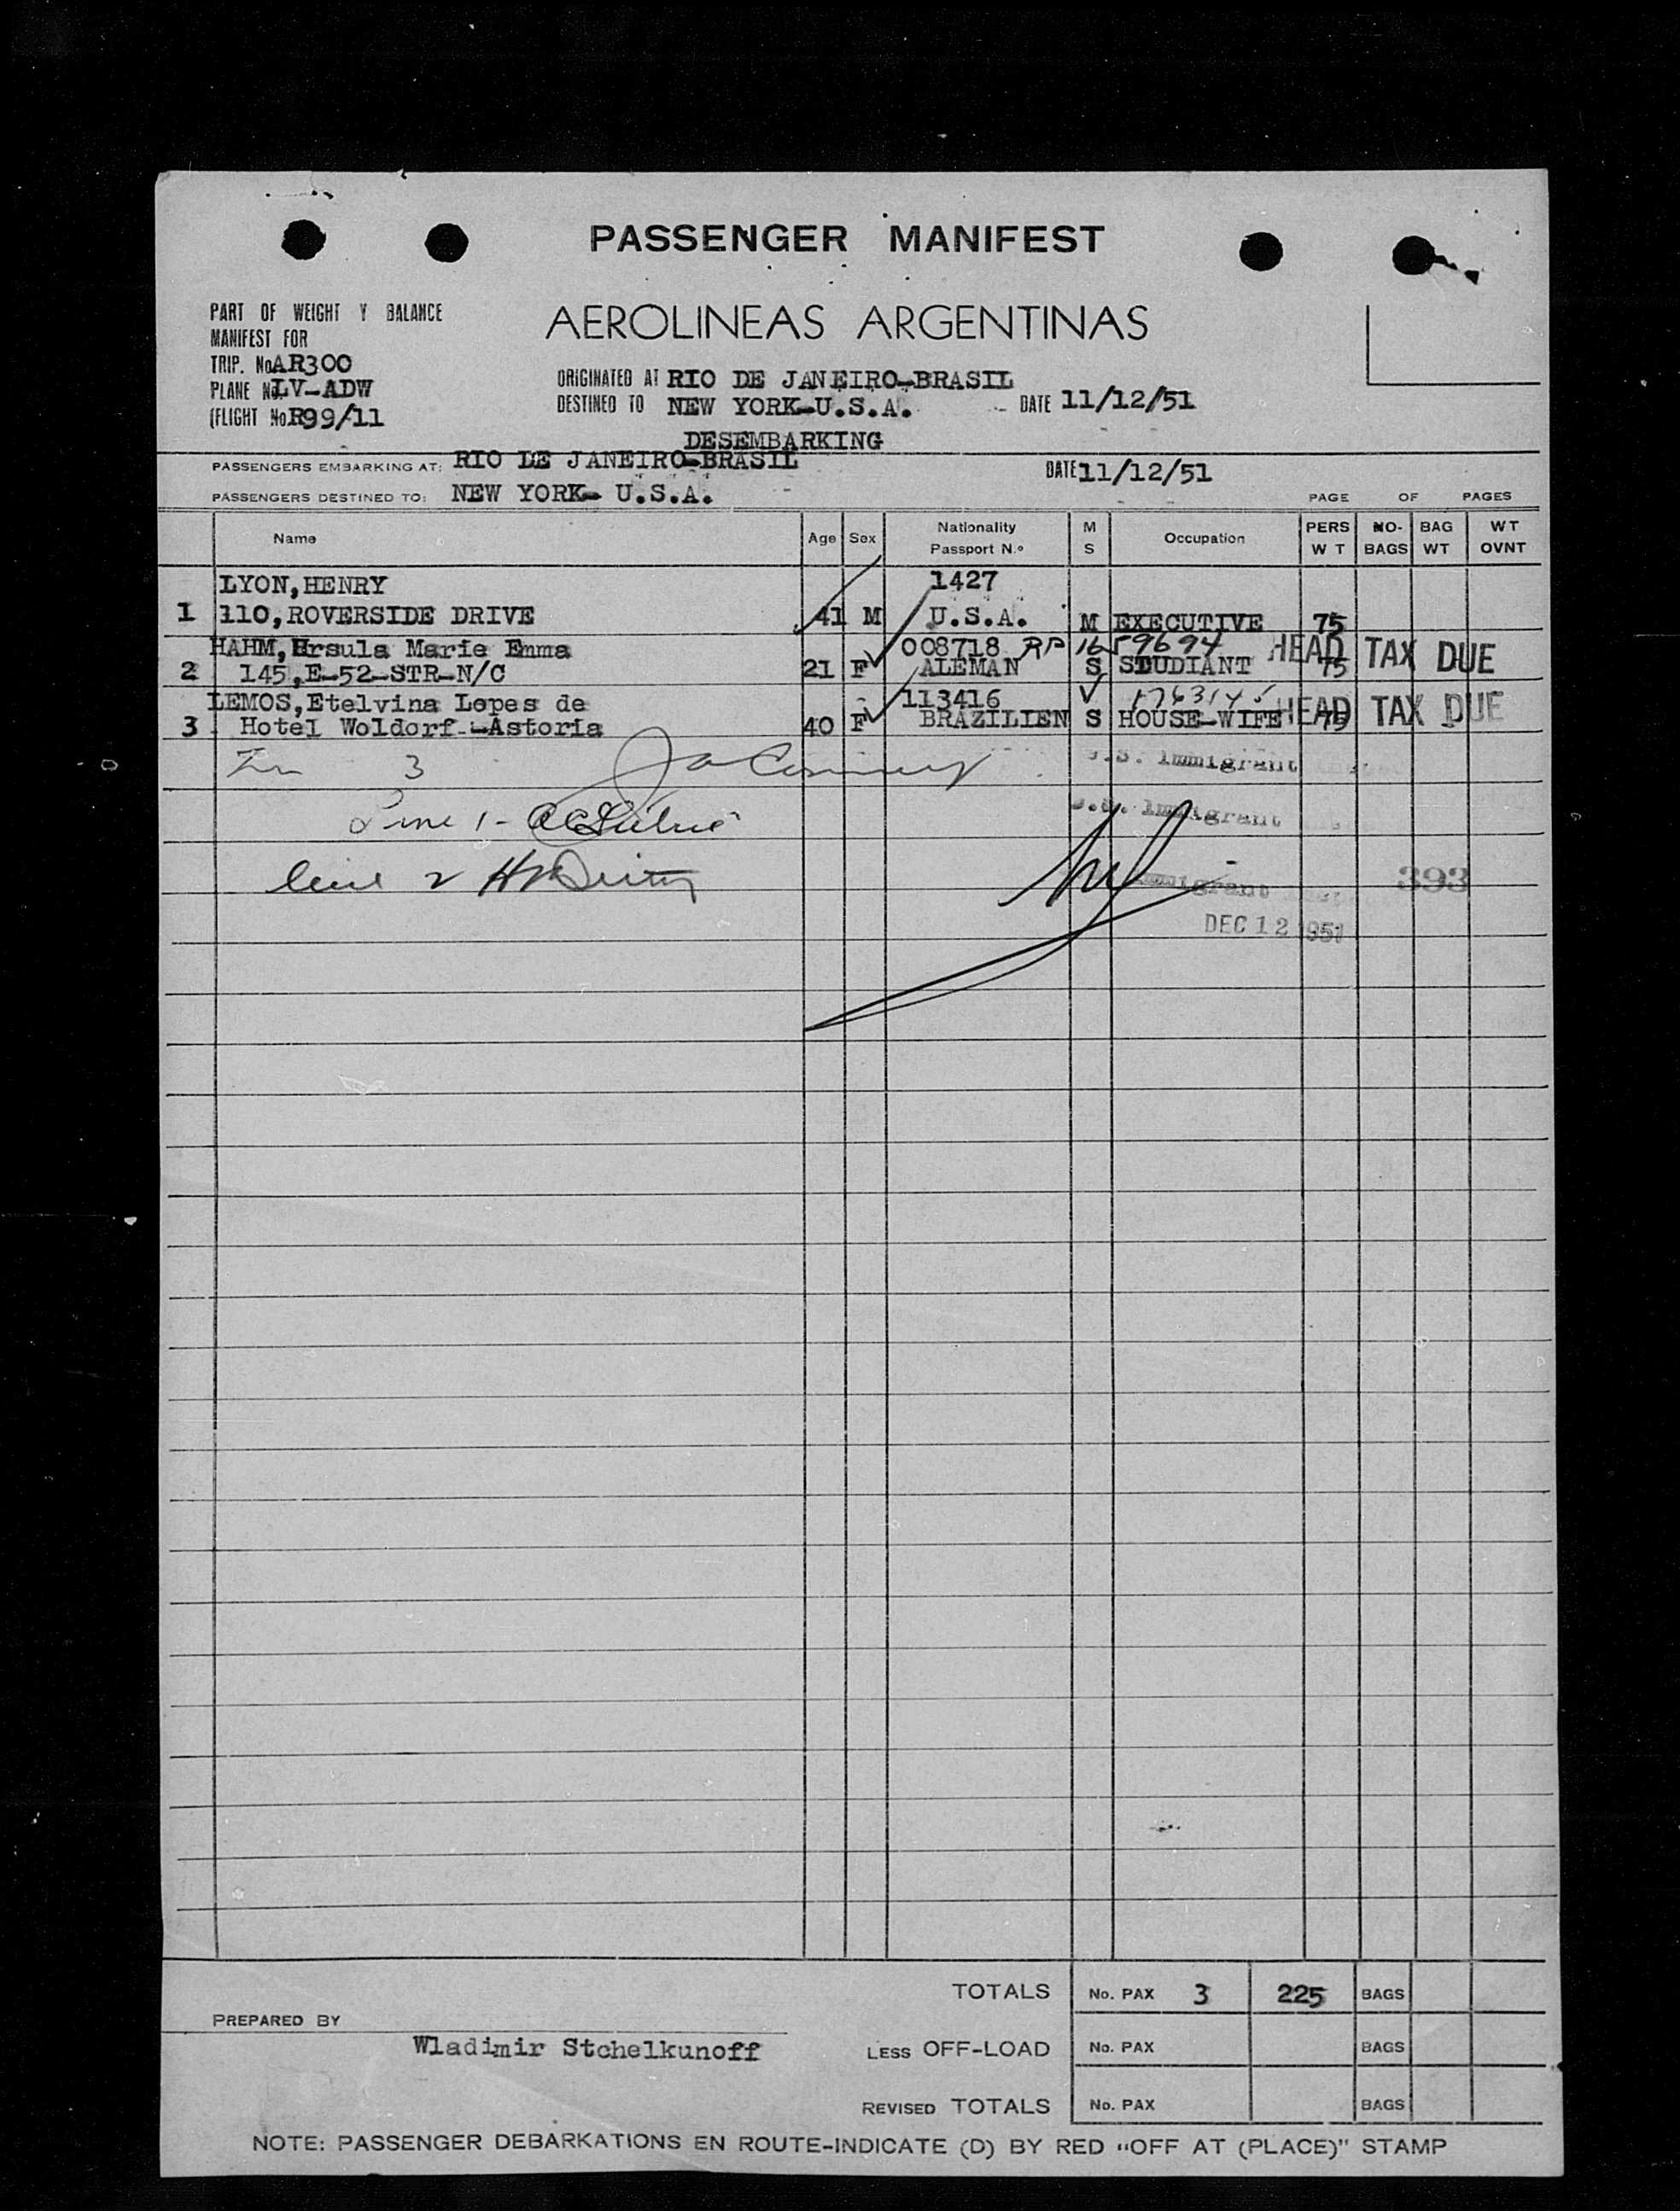 PASSENGER MANIFEST
AEROLINEAS ARGENTINAS
PART OF WEIGHT Y BALANCE
MANIFEST FOR
TRIP. No AR300
PLANE No LV-ADW
(FLIGHT No R99/11
ORIGINATED AT RIO DE JANEIRO-BRASIL
DESTINED TO NEW YORK-U.S.A. DATE 11/12/51
DESEMBARKING
PASSENGERS EMBARKING AT: RIO DE JANEIRO-BRASIL DATE 11/12/51
PASSENGERS DESTINED TO: NEW YORK- U.S.A. PAGE OF PAGES
Name Age Sex Nationality Passport N.º M S Occupation PERS W T NO- BAGS BAG WT WT OVNT
LYON,HENRY 1427
1 110,ROVERSIDE DRIVE 41 M U.S.A. M EXECUTIVE 75
HAHM,Ursula Marie Emma 008718 RP 1659694 HEAD TAX DUE
2 145,E-52-STR-N/C 21 F ALEMAN S STUDIANT 75
LEMOS,Etelvina Lopes de 113416 V 1763145 HEAD TAX DUE
3 Hotel Woldorf-Astoria 40 F BRAZILIEN S HOUSE-WIFE 75
3 U.S. Immigrant
Line 1- U.S. Immigrant
Line 2 Immigrant 393
DEC 12 1951
TOTALS No. PAX 3 225 BAGS
PREPARED BY
Wladimir Stchelkunoff
LESS OFF-LOAD No. PAX BAGS
REVISED TOTALS No. PAX BAGS
NOTE: PASSENGER DEBARKATIONS EN ROUTE-INDICATE (D) BY RED "OFF AT (PLACE)" STAMP